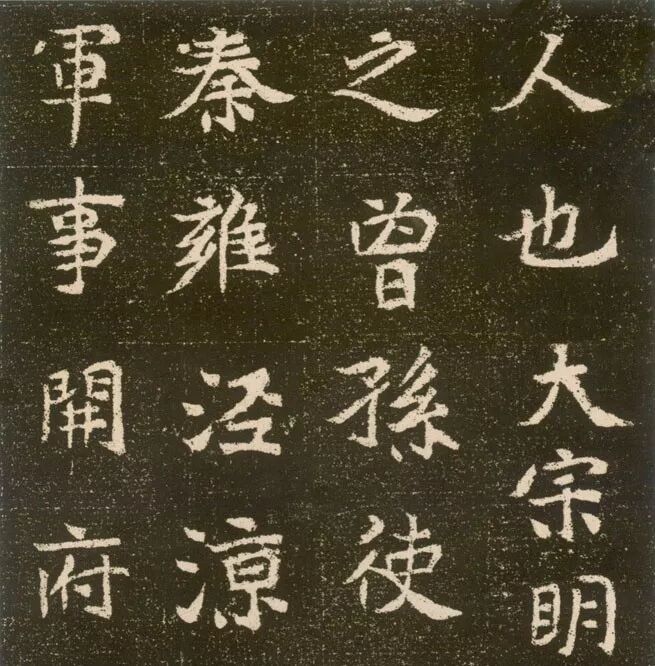 人也大宗明
之曾孫使
秦雍泾凉
軍事開府